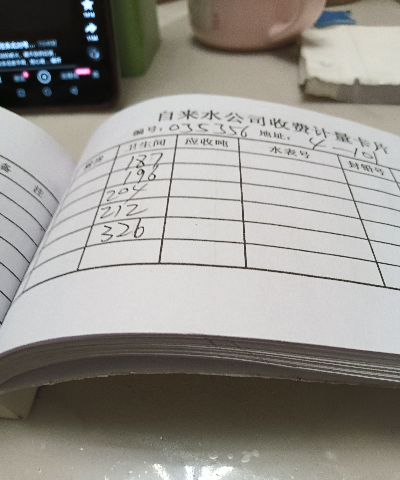 自来水公司收费计量卡片
编号: 035356 地址: 4-101
卫生间 应收吨 水表号 封铅号
187
196
204
212
326
备注